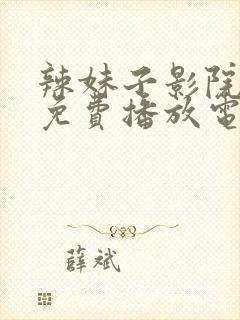 辣妹子影院
免費播放電
薛斌